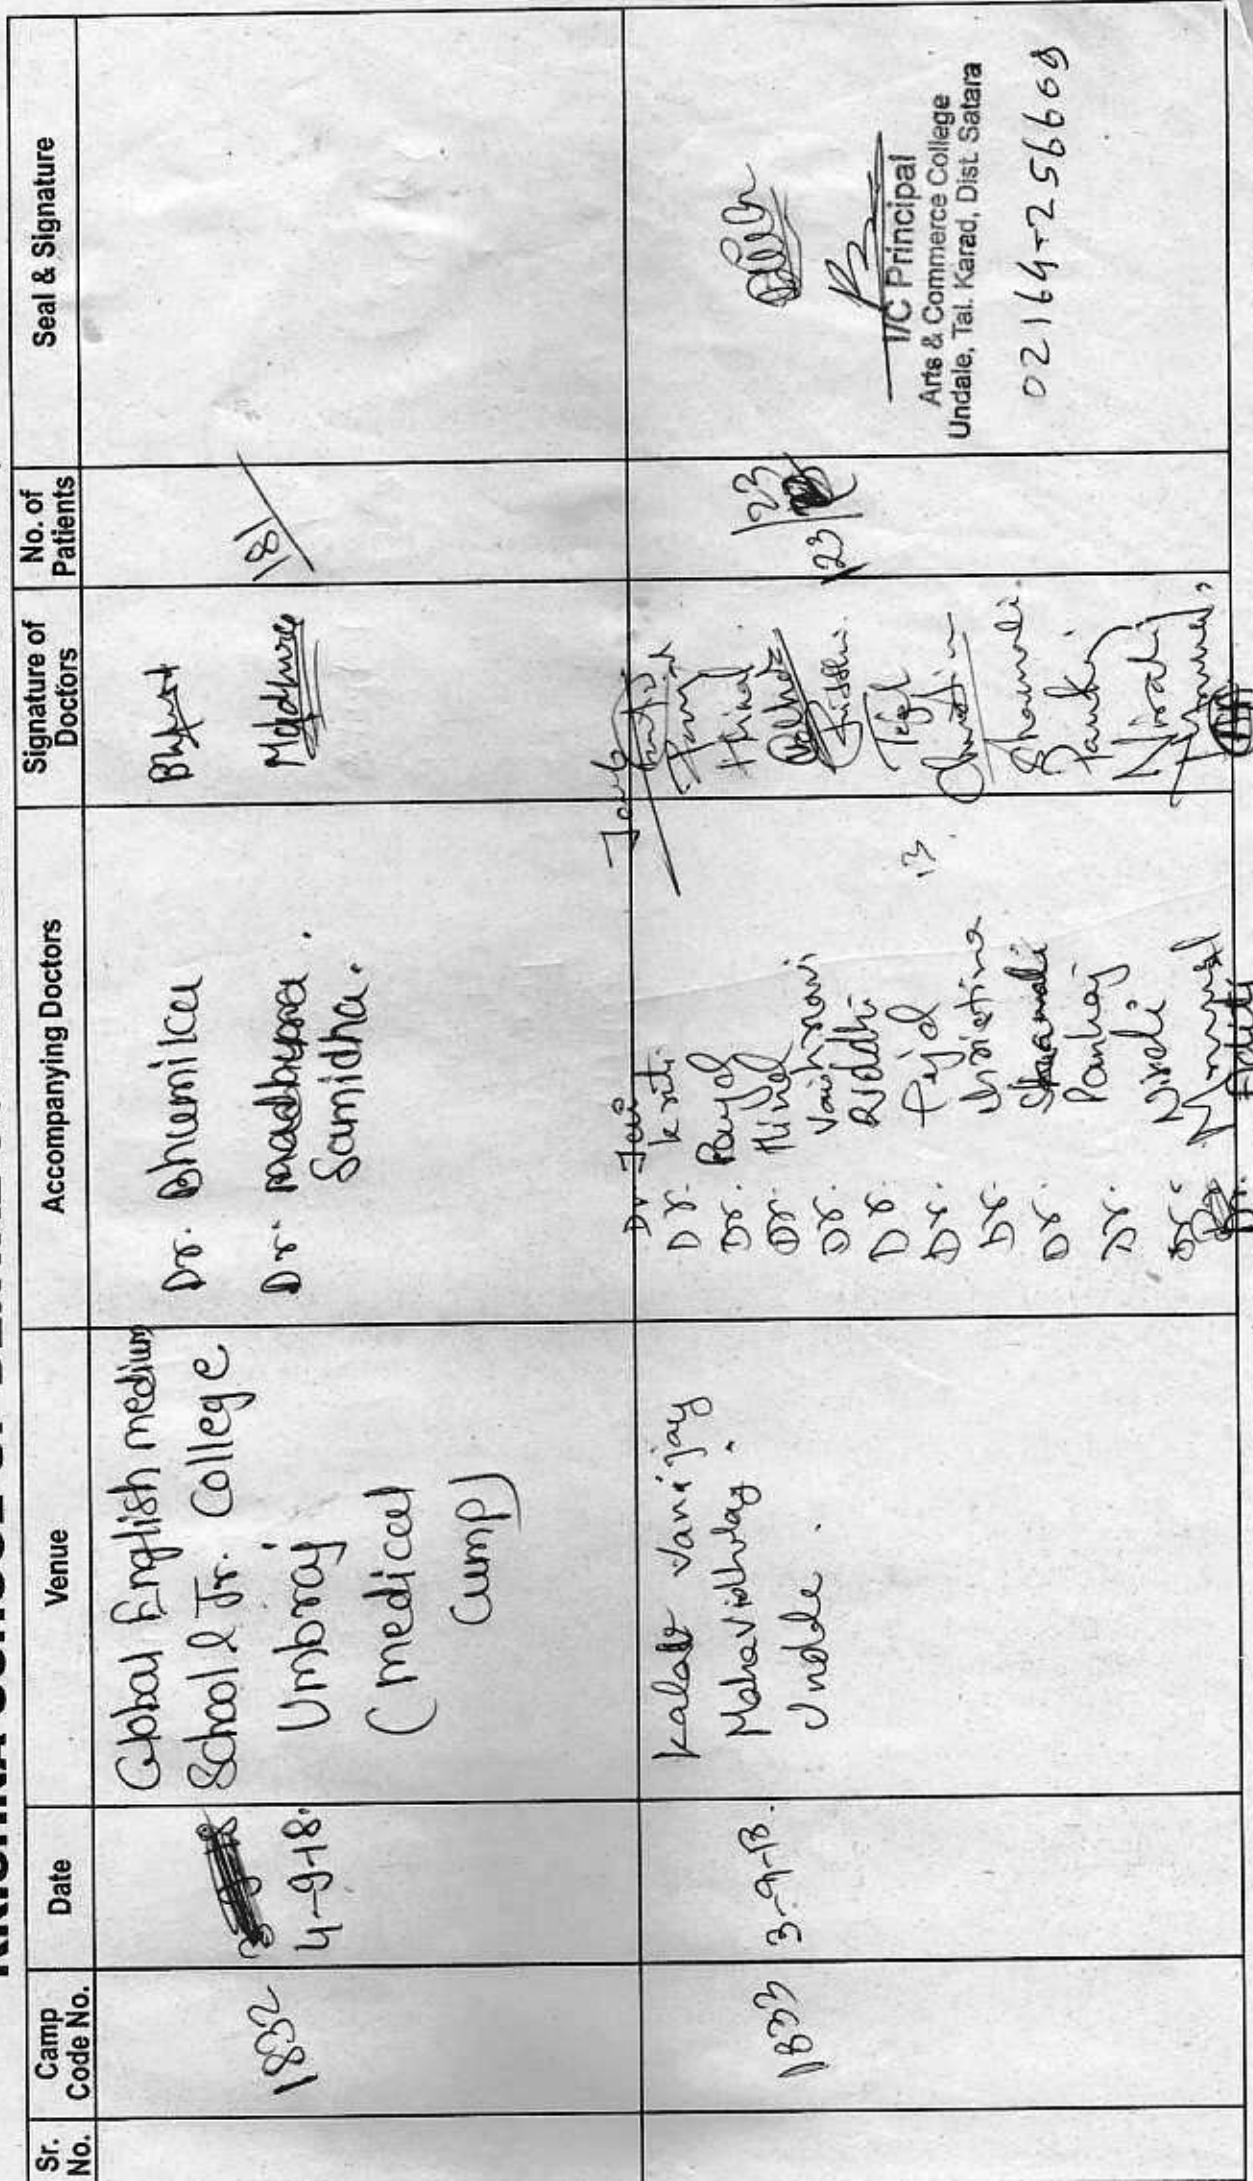 Sr. No.
Camp Code No.
Date
Venue
Accompanying Doctors
Signature of Doctors
No. of Patients
Seal & Signature
1832
4-9-18.
Global English medium
School & Jr. College
Umbraj
(medical
cump)
Dr. Bhumika
Dr. madhura.
Samidha.
Madhura
181/
1833
3-9-18.
Vanijay
Mahavidhylay.
Undale.
Dr. Jai
Dr. kruti.
Dr. Payal
Dr. Hinal
Dr. Vaishnavi
Dr. Riddhi
Dr. Tejal
Dr. Christina
Dr. Shaamali
Dr. Pankaj
Dr. Nirali
Dr. Aditi
13.
Hinal
Riddhi.
Tejal
Shaamali.
Pankaj
Nirali
123
123
I/C Principal
Arts & Commerce College
Undale, Tal. Karad, Dist. Satara
02164-256609